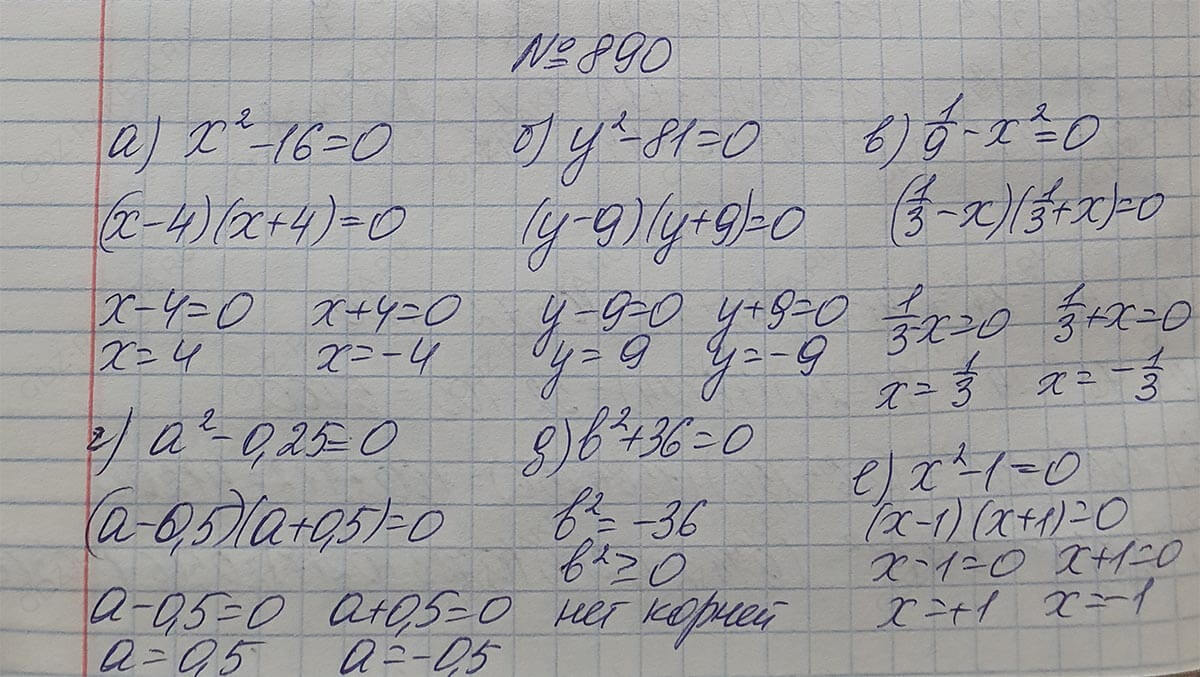 №890
а) x² - 16 = 0
(x - 4)(x + 4) = 0
x - 4 = 0 x + 4 = 0
x = 4 x = -4
б) y² - 81 = 0
(y - 9)(y + 9) = 0
y - 9 = 0 y + 9 = 0
y = 9 y = -9
в) 1/9 - x² = 0
(1/3 - x)(1/3 + x) = 0
1/3 - x = 0 1/3 + x = 0
x = 1/3 x = -1/3
г) a² - 0,25 = 0
(a - 0,5)(a + 0,5) = 0
a - 0,5 = 0 a + 0,5 = 0
a = 0,5 a = -0,5
д) b² + 36 = 0
b² = -36
b² ≥ 0
нет корней
е) x² - 1 = 0
(x - 1)(x + 1) = 0
x - 1 = 0 x + 1 = 0
x = +1 x = -1